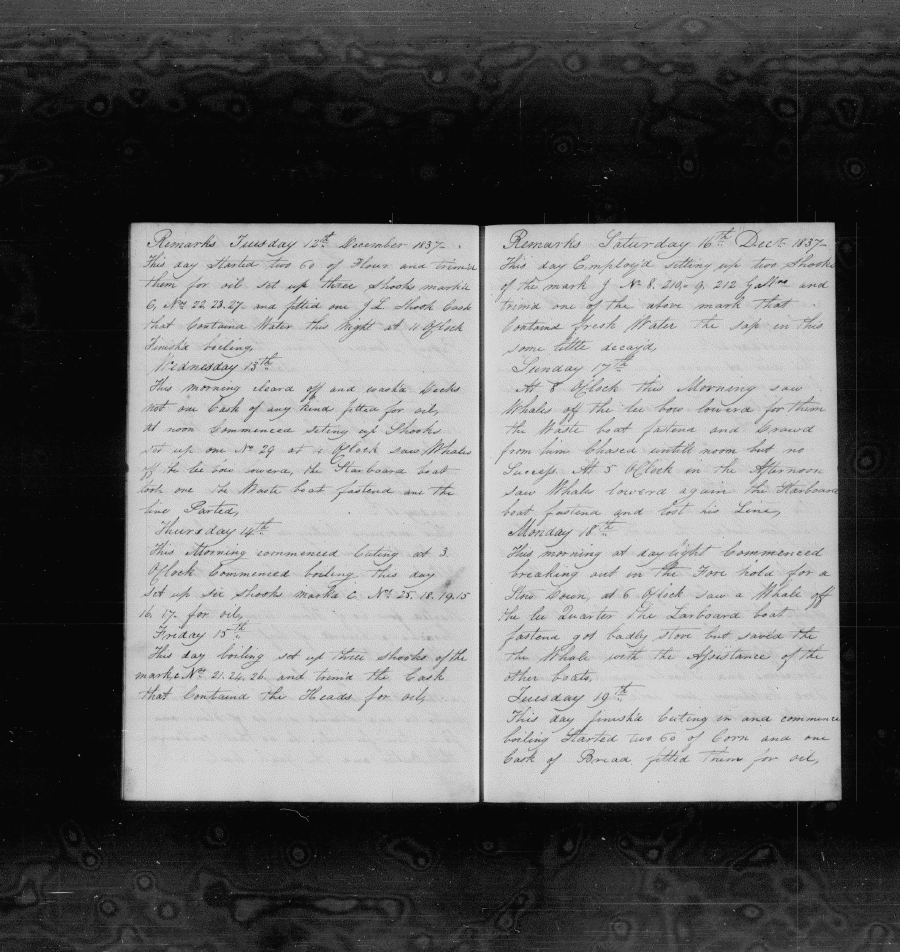 Remarks Tuesday 12th December 1837
This day Started two 60 of Flour and trim'd
them for oil set up three Shooks mark'd
C, Nos 22. 23. 27. and fitted one J L Shook Cask
that Containd Water this Night at 11 OClock
Finishd boiling,
Wednesday 13th
This morning cleard off and washd Decks
not one Cask of any kind fitted for oil,
At noon Commenced seting up Shooks
set up one No 29 at 4 OClock saw Whales
off the lee bow lowerd, the Starboard boat
took one the Waste boat fastend and the
line Parted,
Thursday 14th
This Morning commenced Cuting at 3
OClock Commenced boiling this day
Set up six Shooks markd C. Nos 25. 18. 19. 15
16. 17. for oil,
Friday 15th
This day boiling set up three shooks of the
mark C Nos 21. 24. 26. and trim'd the Cask
that Containd the Heads for oil,
Remarks Saturday 16th Decr 1837
This day Employ'd setting up two Shooks
of the mark J No 8. 210. 9. 212 Gallns and
trim'd one of the above mark that
Containd fresh Water the sap in this
some little decay'd,
Sunday 17th
At 8 OClock this Morning saw
Whales off the lee bow lowerd for them
the Waste boat fastend and Drawd
from him Chased untill noon but no
Success. At 5 OClock in the Afternoon
saw Whales lowerd again the Starboard
boat fastend and lost his Line,
Monday 18th
This morning at day light Commenced
breaking out in the Fore hold for a
Stow Down, at 6 OClock saw a Whale off
the lee Quarter the Larboard boat
fastend got badly stove but saved the
the Whale with the Assistance of the
other boats,
Tuesday 19th
This day finishd Cuting in and commence
boiling Started two 60 of Corn and one
Cask of Bread fitted them for oil,